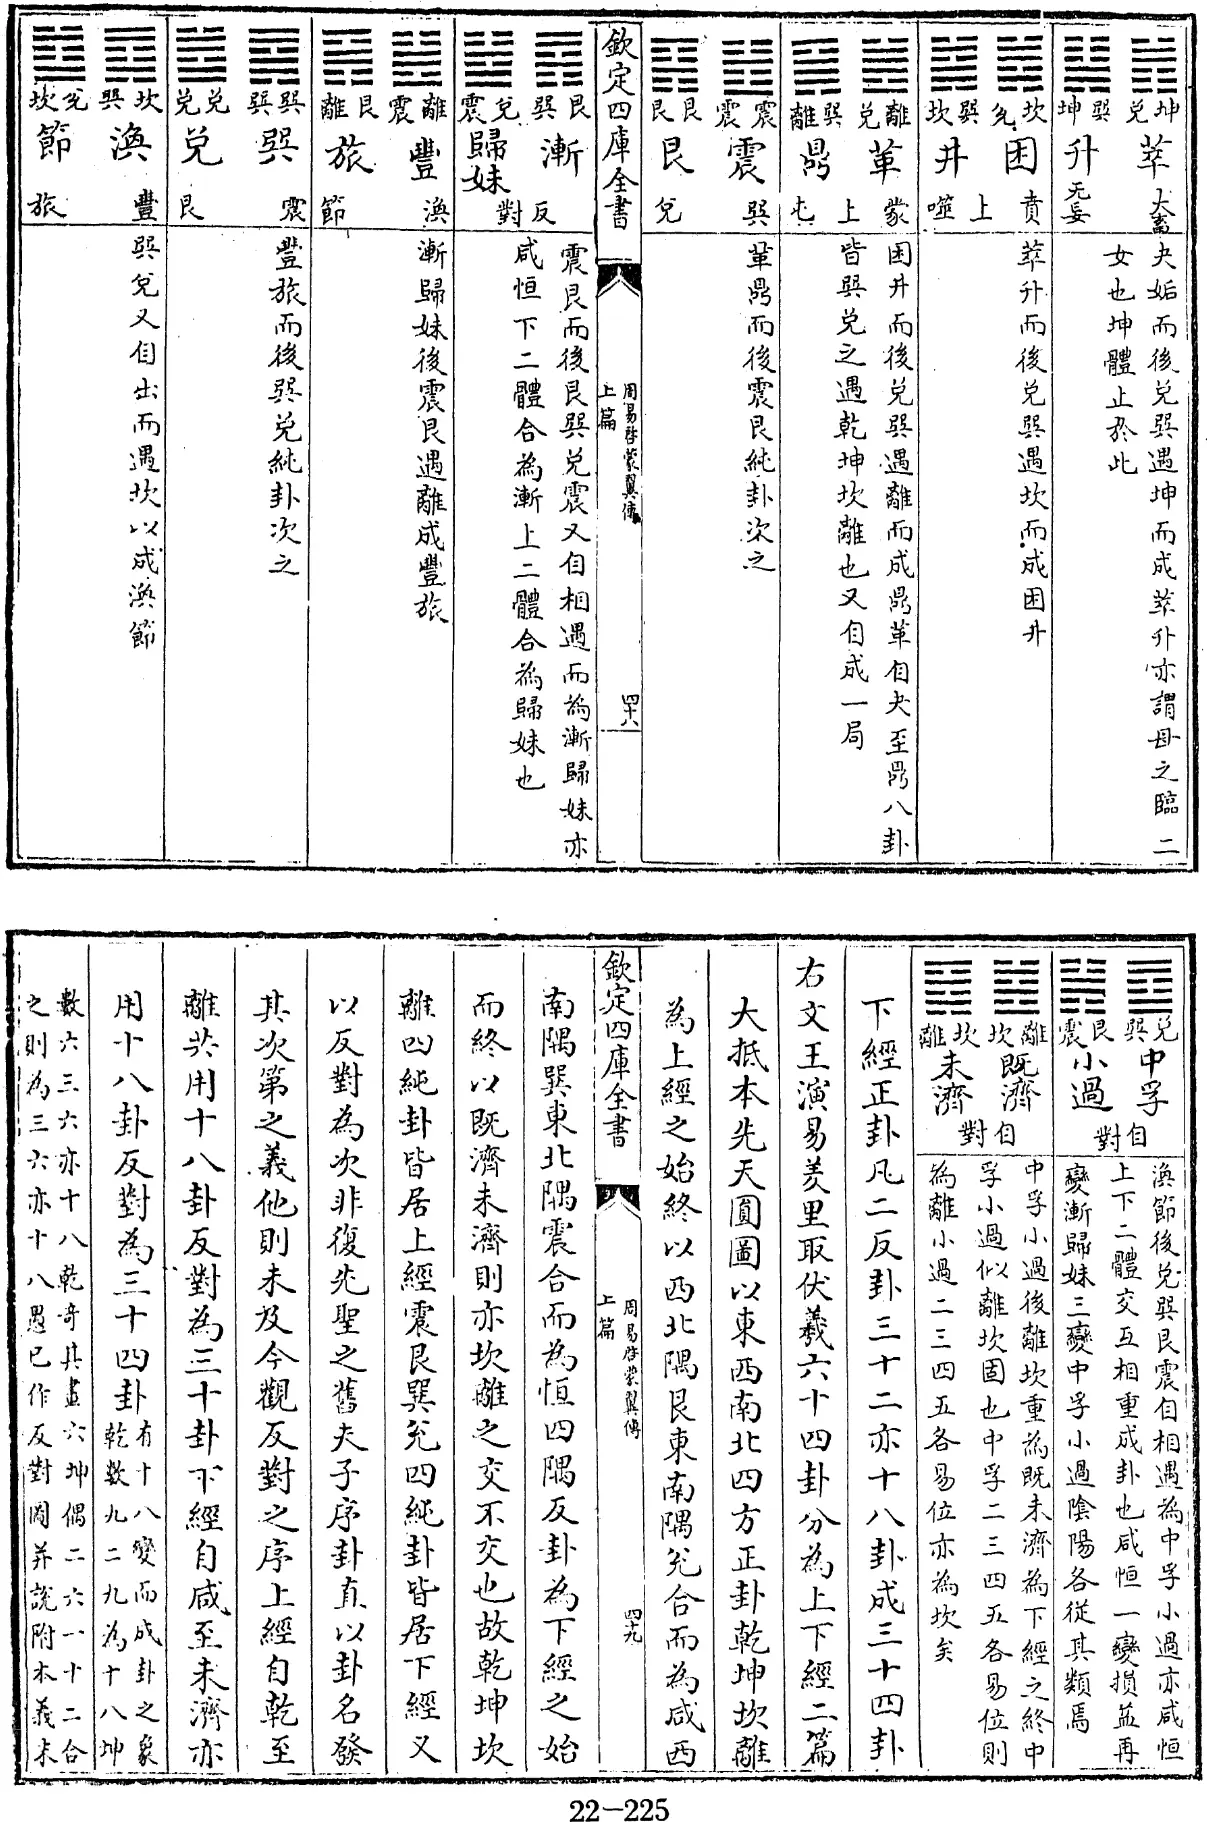 坤兌萃大畜
巽坤升无妄
夬姤而後兌巽遇坤而成萃升亦謂母之臨二
女也坤體止於此
坎兌困賁
巽坎井噬
上
萃升而後兌巽遇坎而成困井
離兌革蒙
巽離鼎屯
上
困井而後兌巽遇離而成鼎革自夬至鼎八卦
皆巽兌之遇乾坤坎離也又自成一局
震震震巽
艮艮艮兌
革鼎而後震艮純卦次之
欽定四庫全書
周易啓蒙翼傳
上篇
四十八
艮巽漸
兌震歸妹
反對
震艮而後艮巽兌震又自相遇而為漸歸妹亦
咸恒下二體合為漸上二體合為歸妹也
離震豐渙
艮離旅節
漸歸妹後震艮遇離成豐旅
巽巽巽震
兌兌兌艮
豐旅而後巽兌純卦次之
坎巽渙豐
兌坎節旅
巽兌又自出而遇坎以成渙節
兌巽中孚
艮震小過
自對
渙節後兌巽艮震自相遇為中孚小過亦咸恒
上下二體交互相重成卦也咸恒一變損益再
變漸歸妹三變中孚小過陰陽各從其類焉
離坎既濟
坎離未濟
自對
中孚小過後離坎重為既未濟為下經之終中
孚小過似離坎固也中孚二三四五各易位則
為離小過二三四五各易位亦為坎矣
下經正卦凡二反卦三十二亦十八卦成三十四卦
右文王演易羑里取伏羲六十四卦分為上下經二篇
大抵本先天圓圖以東西南北四方正卦乾坤坎離
為上經之始終以西北隅艮東南隅兌合而為咸西
欽定四庫全書
周易啓蒙翼傳
上篇
四十九
南隅巽東北隅震合而為恒四隅反卦為下經之始
而終以既濟未濟則亦坎離之交不交也故乾坤坎
離四純卦皆居上經震艮巽兌四純卦皆居下經又
以反對為次非復先聖之舊夫子序卦直以卦名發
其次第之義他則未及今觀反對之序上經自乾至
離共用十八卦反對為三十卦下經自咸至未濟亦
用十八卦反對為三十四卦有十八變而成卦之象
乾數九二九為十八坤
數六三六亦十八乾奇其畫六坤偶二六一十二合
之則為三六亦十八愚已作反對圖并說附本義末
22-225